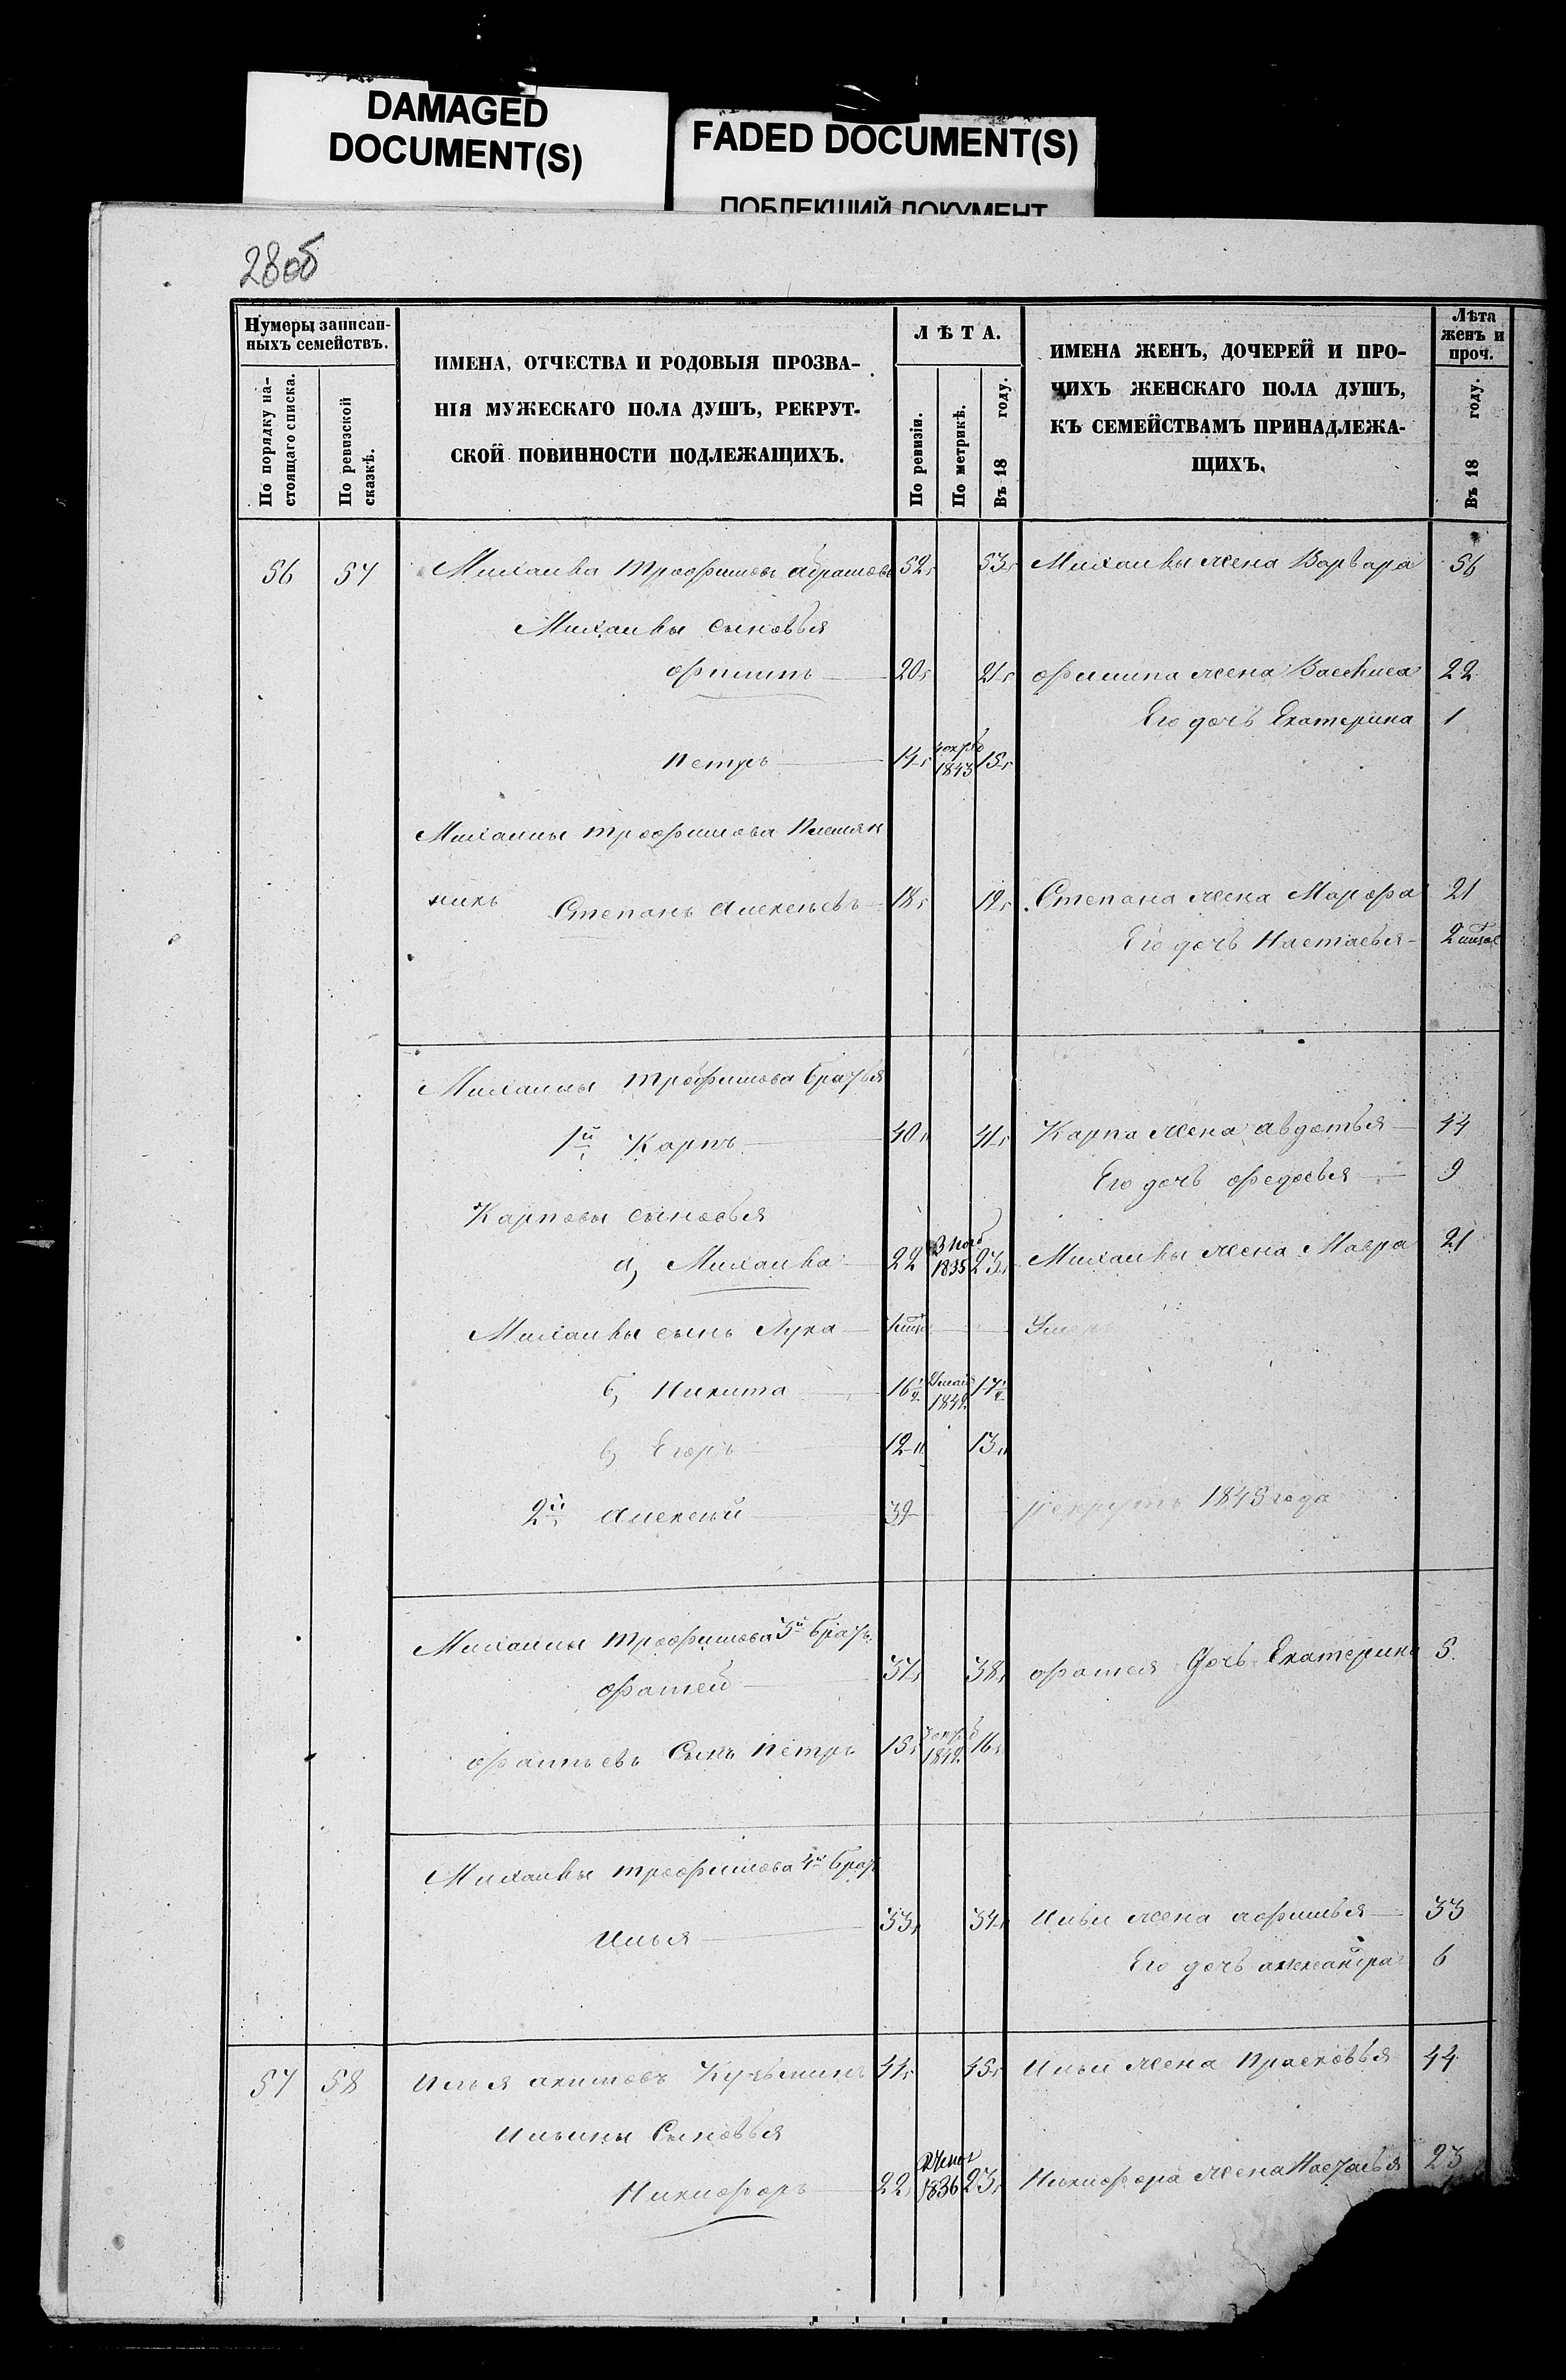 DAMAGED
DOCUMENT(S)
FADED DOCUMENT(S)
ПОБЛЕКШИЙ ДОКУМЕНТ
28об
Нумеры записан-
ныхъ семействъ.
По порядку на-
стоящаго списка.
По ревизской
сказкѣ.
ИМЕНА, ОТЧЕСТВА И РОДОВЫЯ ПРОЗВА-
НІЯ МУЖЕСКАГО ПОЛА ДУШЪ, РЕКРУТ-
СКОЙ ПОВИННОСТИ ПОДЛЕЖАЩИХЪ.
ЛѢТА.
По ревизіи.
По метрикѣ.
Въ 18 году.
ИМЕНА ЖЕНЪ, ДОЧЕРЕЙ И ПРО-
ЧИХЪ ЖЕНСКАГО ПОЛА ДУШЪ,
КЪ СЕМЕЙСТВАМЪ ПРИНАДЛЕЖА-
ЩИХЪ.
Лѣта
женъ и
проч.
Въ 18 году.
56 57 Михаила Трофимовъ Абрамовъ 52 53 Михаилы жена Варвара 56
Михаилы сыновья
Филипъ 20 21 Филипа жена Василиса 22
Его дочь Екатерина 1
Петръ 14 1843 15
Михаилы Трофимова Племян
никъ Степанъ Алексѣевъ 18 19 Степана жена Марфа 21
Его дочь Настасья 2
Михаилы Трофимова братья
1й Карпъ 40 41 Карпа жена Авдотья 44
Его дочь Федосья 9
Карповы сыновья
а, Михаила 22 3 Нояб 1835 23 Михаилы жена Мавра 21
Михаилы сынъ Лука Умеръ
б, Никита 16 1842 17
в, Егоръ 12 13
2й Алексѣй 39 рекрутъ 1845 года
Михаилы Трофимова 3й братъ
Фатей 37 38 Фатея Дочь Екатерина 5
Фатѣевъ Сынъ Петръ 15 1842 16
Михаилы Трофимова 4й братъ
Илья 33 34 Ильи жена Афимья 33
Его дочь Александра 6
57 58 Илья Акимовъ Кузьминъ 44 45 Ильи жена Прасковья 44
Ильины Сыновья
Никифоръ 22 1836 23 Никифора жена Настасья 23